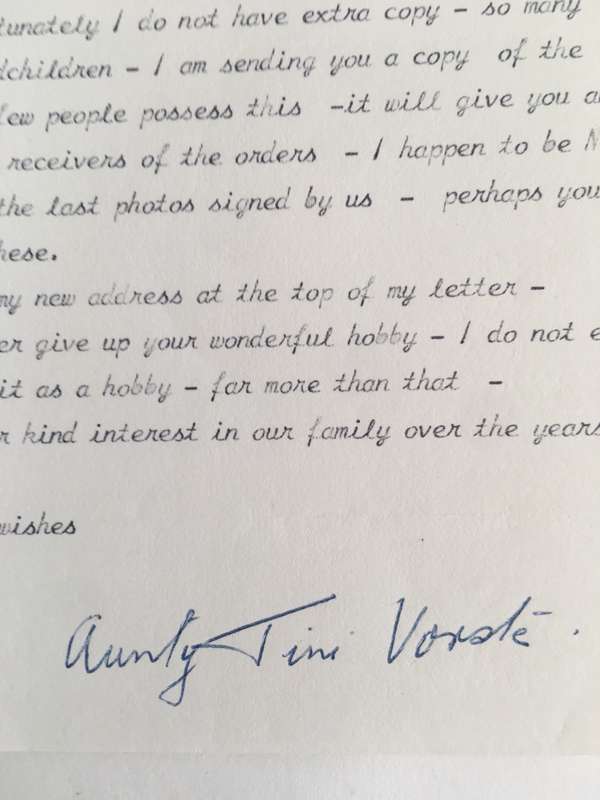 tunately I do not have extra copy - so many
dchildren - I am sending you a copy of the
few people possess this - it will give you a
receivers of the orders - I happen to be N
the last photos signed by us - perhaps you
hese.
my new address at the top of my letter -
er give up your wonderful hobby - I do not e
it as a hobby - far more than that -
r kind interest in our family over the years
wishes
Aunty Tini Vorster.